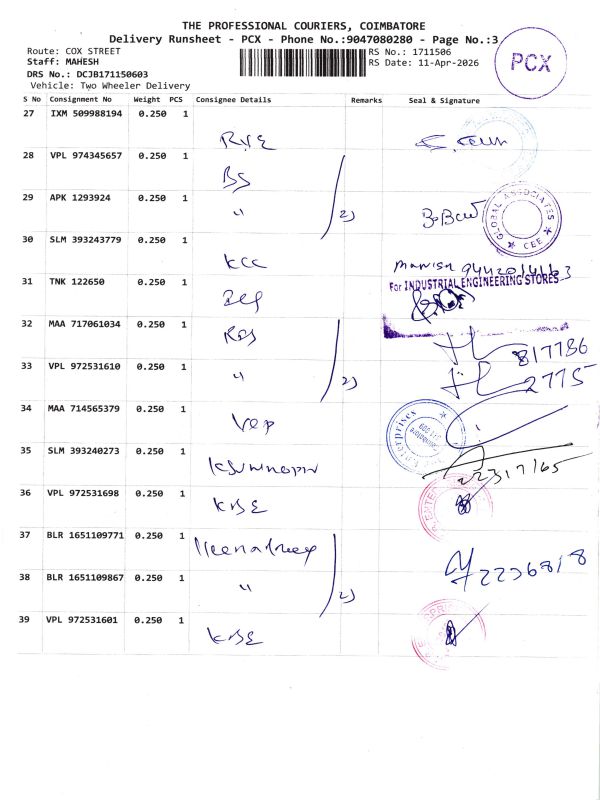 THE PROFESSIONAL COURIERS, COIMBATORE
Delivery Runsheet - PCX - Phone No.:9047080280 - Page No.:3
Route: COX STREET
RS No.: 1711506
Staff: MAHESH
RS Date: 11-Apr-2026
DRS No.: DCJB171150603
Vehicle: Two Wheeler Delivery
PCX
S No Consignment No Weight PCS Consignee Details Remarks Seal & Signature
27 IXM 509988194 0.250 1
28 VPL 974345657 0.250 1
BS
29 APK 1293924 0.250 1
" 2)
GLOBAL ASSOCIATES CEE
30 SLM 393243779 0.250 1
KCC
31 TNK 122650 0.250 1
For INDUSTRIAL ENGINEERING STORES
32 MAA 717061034 0.250 1
817786
33 VPL 972531610 0.250 1
" 2)
2775
34 MAA 714565379 0.250 1
35 SLM 393240273 0.250 1
36 VPL 972531698 0.250 1
KBE
37 BLR 1651109771 0.250 1
2236818
38 BLR 1651109867 0.250 1
" 2)
39 VPL 972531601 0.250 1
KBE